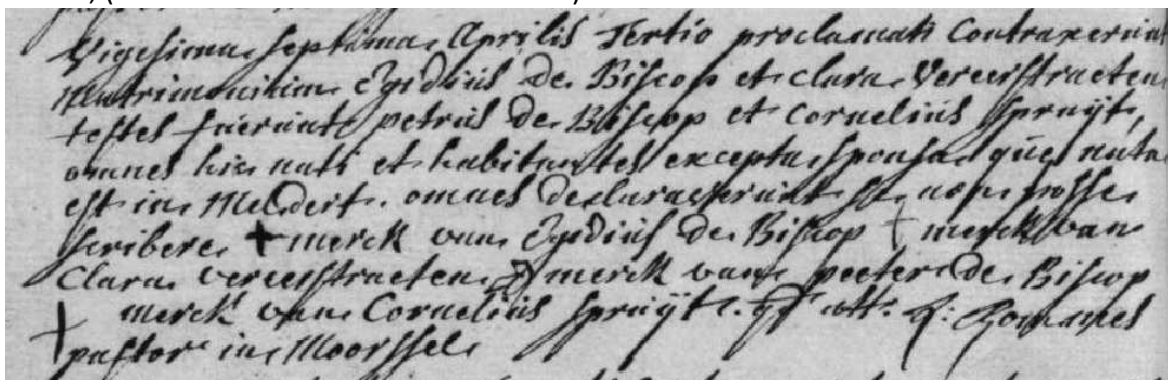 Vigesima septima Aprilis Tertio proclamati Contraxerunt
Matrimonium Egidius De Biscop et Clara Vereerstraeten
testes fuerunt petrus De Biscop et Cornelius Spruÿt,
omnes hic nati et habitantes excepta sponsa que nata
est in Meldert. omnes declaraverunt se non posse
scribere + merck van Egidius De Biscop + merck van
Clara vereerstraeten merck van peeter De Biscop
+ merck van Cornelius Spruÿt. qd att. J: Romanes
pastor in Moorssel